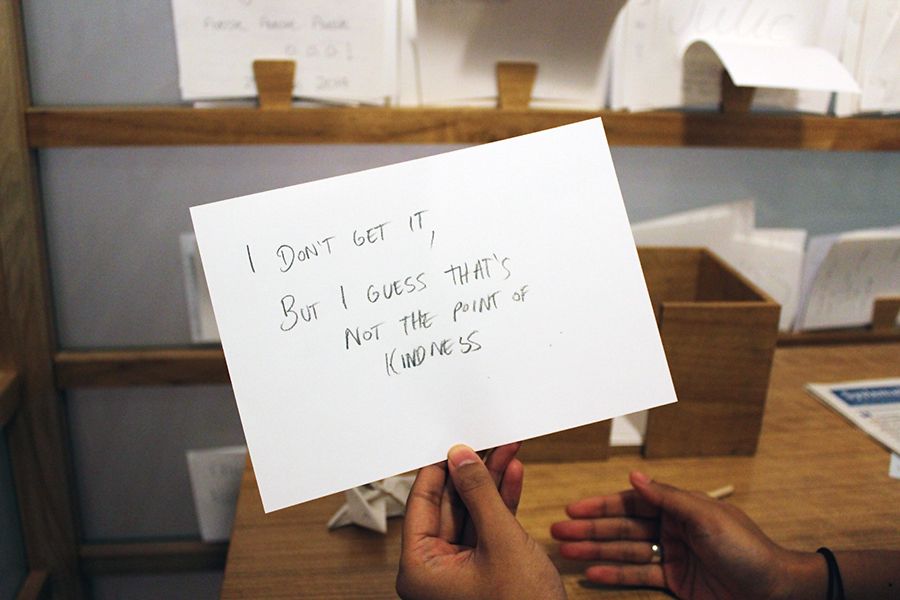 I DON'T GET IT,
BUT I GUESS THAT'S
NOT THE POINT OF
KINDNESS
2019